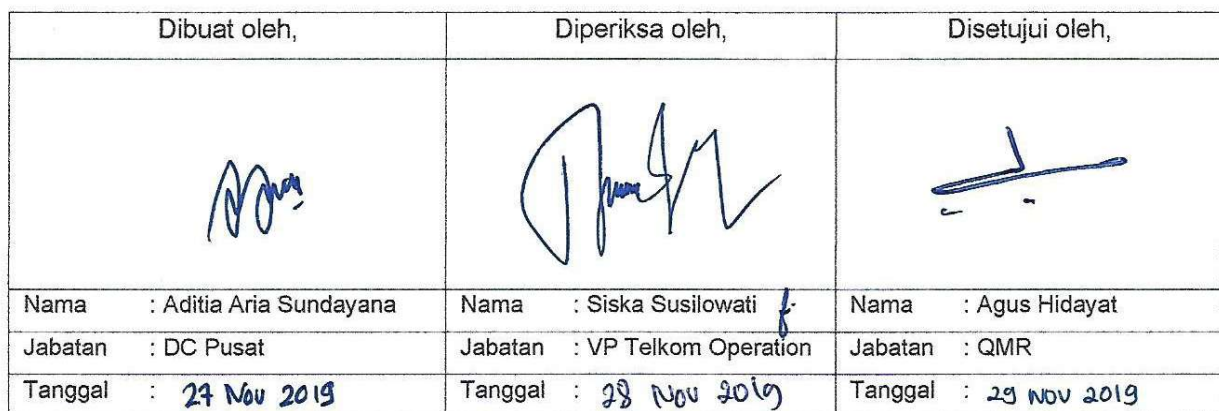 Dibuat oleh, Diperiksa oleh, Disetujui oleh,
Nama : Aditia Aria Sundayana Nama : Siska Susilowati Nama : Agus Hidayat
Jabatan : DC Pusat Jabatan : VP Telkom Operation Jabatan : QMR
Tanggal : 27 Nov 2019 Tanggal : 28 Nov 2019 Tanggal : 29 Nov 2019